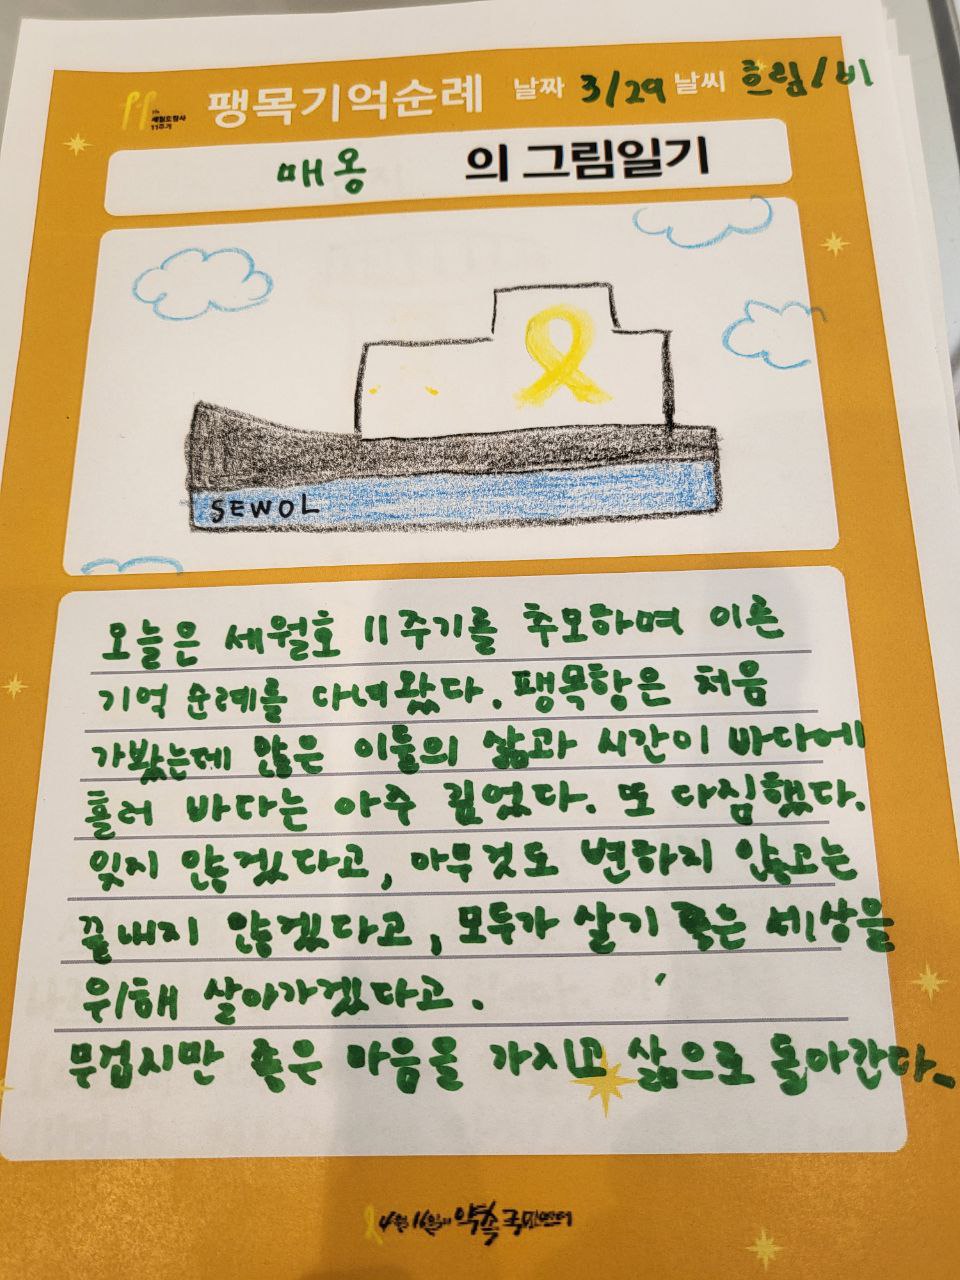 세월호참사
11주기
팽목기억순례 날짜 3/29 날씨 흐림/비
매옹 의 그림일기
SEWOL
오늘은 세월호 11주기를 추모하며 이른
기억 순례를 다녀왔다. 팽목항은 처음
가봤는데 많은 이들의 삶과 시간이 바다에
흘러 바다는 아주 깊었다. 또 다짐했다.
잊지 않겠다고, 아무것도 변하지 않고는
끝내지 않겠다고, 모두가 살기 좋은 세상을
위해 살아가겠다고.
무겁지만 좋은 마음을 가지고 삶으로 돌아간다_
4월16일의 약속 국민연대